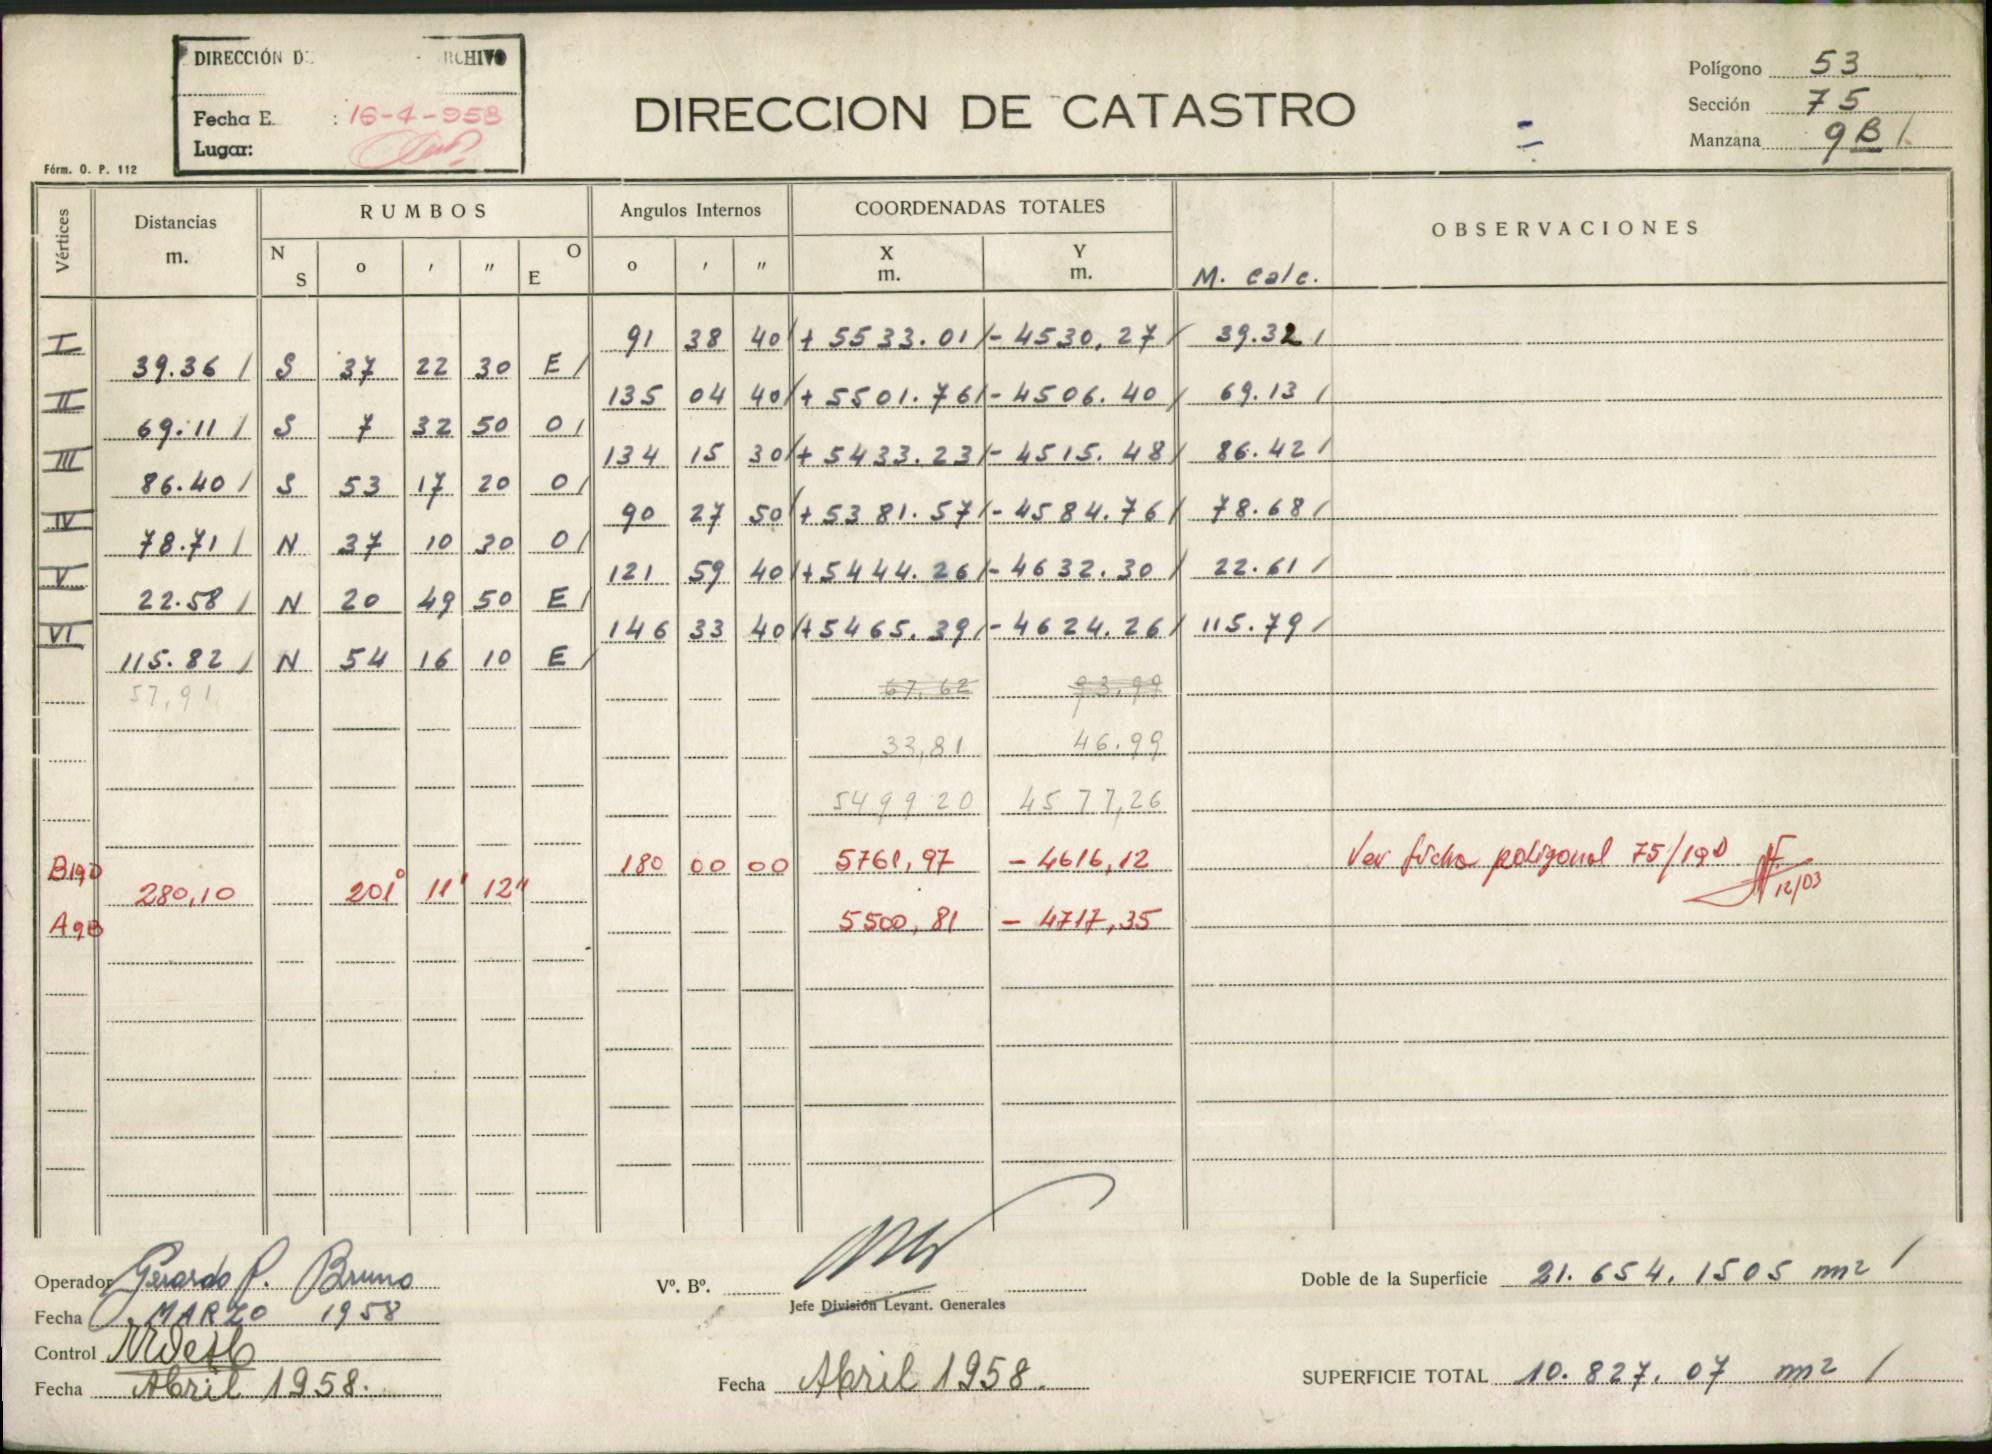 DIRECCIÓN D RCHIVO
Fecha E. : 16-4-958
Lugar:
Fórm. O. P. 112
DIRECCION DE CATASTRO
Polígono 53
Sección 75
Manzana 9B /
Vértices
Distancias m.
RUMBOS
N S o ' " E O
Angulos Internos
o ' "
COORDENADAS TOTALES
X m. Y m.
M. Calc.
OBSERVACIONES
I 91 38 40 / + 5533.01 / - 4530,27 / 39.32 /
39.36 / S 37 22 30 E /
II 135 04 40 / + 5501.76 / - 4506.40 / 69.13 /
69.11 / S 7 32 50 O /
III 134 15 30 / + 5433.23 / - 4515.48 / 86.42 /
86.40 / S 53 17 20 O /
IV 90 27 50 / + 5381.57 / - 4584.76 / 78.68 /
78.71 / N 37 10 30 O /
V 121 59 40 / + 5444.26 / - 4632.30 / 22.61 /
22.58 / N 20 49 50 E /
VI 146 33 40 / + 5465.39 / - 4624.26 / 115.79 /
115.82 / N 54 16 10 E /
57,91 67,62 93,99
33,81 46,99
5499 20 4577,26
B19D 180 00 00 5761,97 - 4616,12 Ver ficha poligonal 75/19D
280,10 201° 11' 12" 12/03
A9B 5500,81 - 4717,35
Operador Gerardo P. Bruno
Fecha MARZO 1958
Control
Fecha Abril 1958.
Vº. Bº.
Jefe División Levant. Generales
Fecha Abril 1958.
Doble de la Superficie 21.654,1505 m2 /
SUPERFICIE TOTAL 10.827,07 m2 /